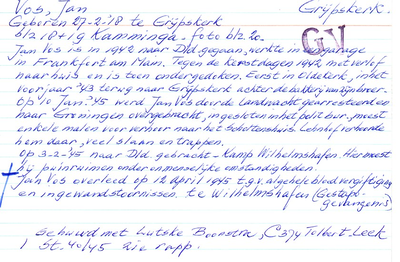 Vos, Jan Grijpskerk.
Geboren 27-2-'18 te Grijpskerk
blz 18+19 Kamminga - foto blz. 20
GV
Jan Vos is in 1942 naar Dld. gegaan, werkte in garage
in Frankfort am Main. Tegen de kerstdagen 1942 met verlof
naar huis en is toen ondergedoken. Eerst in Oldekerk, in het
voorjaar '43 terug naar Grijpskerk achter de bakkerij van zijn broer.
Op 10 Jan. '45 werd Jan Vos door de Landwacht gearresteerd en
naar Groningen overgebracht, ingesloten in het politiebur, moest
enkele malen voor verhoor naar het Scholtenshuis. Lehnhof verhoorde
hem daar, veel slaan en trappen.
Op 3-2-'45 naar Dld. gebracht - Kamp Wilhelmshafen. Hier moest
hij puinruimen onder onmenselijke omstandigheden.
Jan Vos overleed op 12 april 1945 t.g.v. algehele bloedvergiftiging
en ingewandstoornissen. te Wilhelmshafen (Gestapo-
gevangenis)
Gehuwd met Lutske Boonstra, C374 Tolbert-Leek
1 St. 40/45 2ie rapp.